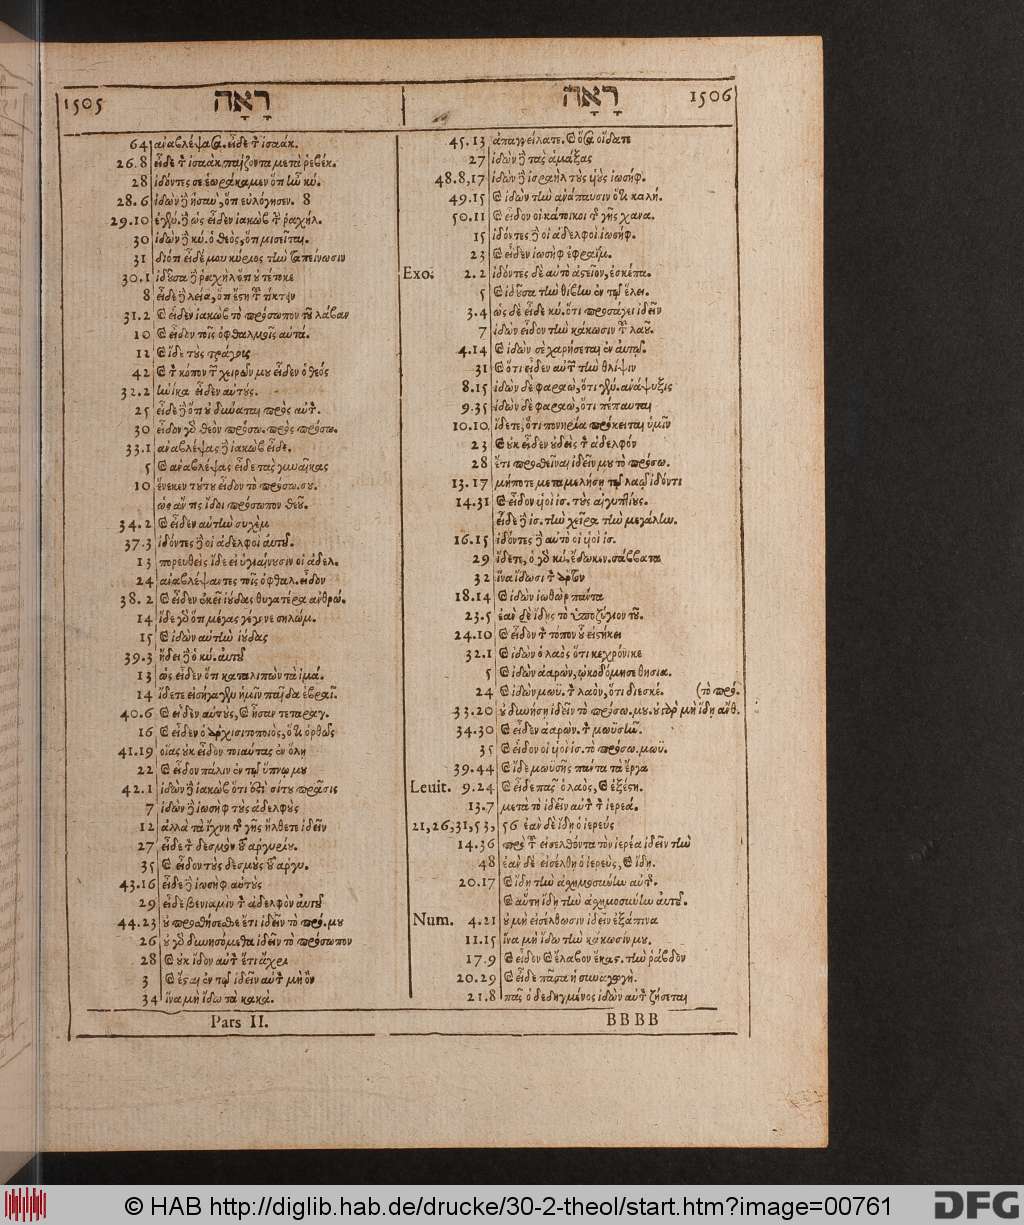 1505 רָאָה
64 ἀναβλέψασα. εἶδε τ ἰσαάκ.
26.8 εἶδε τ ἰσαὰκ παίζοντα μετὰ ῥεβέκ.
28 ἰδόντες ἑωράκαμεν ὅτι ἦν κύ.
28.6 ἰδὼν ἠσαῦ, ὅτι εὐλόγησεν. 8
29.10 ὡς εἶδεν ἰακὼβ τ ῥαχήλ.
30 ἰδὼν κύ. ὁ θεὸς, ὅτι μισεῖται.
31 διότι εἶδέ μου κύριος τὴν ταπείνωσιν
30.1 ἰδοῦσα ῥαχὴλ ὅτι οὐ τέτοκε
8 εἶδε λεία, ὅτι ἔστη τοῦ τίκτειν
31.2 καὶ εἶδεν ἰακὼβ τὸ πρόσωπον τοῦ λάβαν
10 καὶ εἶδον τοῖς ὀφθαλμοῖς αὐτά.
12 καὶ ἴδε τοὺς τράγοις
42 καὶ τ κόπον τῶν χειρῶν μου εἶδεν ὁ θεός
32.2 ἡνίκα εἶδεν αὐτούς.
25 εἶδε ὅτι οὐ δύναται πρὸς αὐτ.
30 εἶδον γὸ θεὸν πρόσω. πρὸς πρόσω.
33.1 ἀναβλέψας ἰακὼβ εἶδε.
5 καὶ ἀναβλέψας εἶδε τὰς γυναῖκας
10 ἕνεκεν τούτου εἶδον τὸ πρόσω. σου.
ὡς ἄν τις ἴδοι πρόσωπον θεοῦ.
34.2 καὶ εἶδεν αὐτὴν συχὲμ
37.3 ἰδόντες οἱ ἀδελφοὶ αὐτοῦ.
13 πορευθεὶς ἴδε εἰ ὑγιαίνουσιν οἱ ἀδελ.
24 ἀναβλέψαντες τοῖς ὀφθαλ. εἶδον
38.2 καὶ εἶδεν ἐκεῖ ἰούδας θυγατέρα ἀνθρώ.
14 ἴδε γὸ ὅτι μέγας γέγονε σηλώμ.
15 καὶ ἰδὼν αὐτὴν ἰούδας
39.3 ᾔδει ὁ κύ. αὐτοῦ
13 ὡς εἶδεν ὅτι καταλιπὼν τὰ ἱμά.
14 ἴδετε εἰσήγαγεν ἡμῖν παῖδα ἑβραῖ.
40.6 καὶ εἶδεν αὐτοὺς, καὶ ἦσαν τεταραγ.
16 καὶ εἶδεν ὁ ἀρχισιτοποιὸς, ὅτι ὀρθῶς
41.19 οἵας οὐκ εἶδον τοιαύτας ἐν ὅλῃ
22 καὶ εἶδον πάλιν ἐν τῷ ὕπνῳ μου
42.1 ἰδὼν ἰακὼβ ὅτι ἐστὶ σίτου πρᾶσις
7 ἰδὼν ἰωσὴφ τοὺς ἀδελφοὺς
12 ἀλλὰ τὰ ἴχνη τ γῆς ἤλθετε ἰδεῖν
27 εἶδε τ δεσμὸν τοῦ ἀργυρίου.
35 καὶ εἶδον τοὺς δεσμοὺς τοῦ ἀργυ.
43.16 εἶδε ἰωσὴφ αὐτοὺς
29 εἶδε βενιαμὶν τ ἀδελφὸν αὐτοῦ
44.23 οὐ προσθήσεσθε ἔτι ἰδεῖν τὸ πρό. μου
26 οὐ γὸ δυνησόμεθα ἰδεῖν τὸ πρόσωπον
28 καὶ οὐκ ἴδον αὐτ ἔτι ἄχρι
3 καὶ ἔσται ἐν τῷ ἰδεῖν αὐτ μὴ ὂν
34 ἵνα μὴ ἴδω τὰ κακά.
Pars II.
רָאָה 1506
45.13 ἀπαγγείλατε. καὶ ὅσα οἴδατε
27 ἰδὼν τὰς ἁμάξας
48.8,17 ἰδὼν ἰσραὴλ τοὺς υἱοὺς ἰωσήφ.
49.15 καὶ ἰδὼν τὴν ἀνάπαυσιν ὅτι καλή.
50.11 καὶ εἶδον οἱ κάτοικοι τ γῆς χανα.
15 ἰδόντες οἱ ἀδελφοὶ ἰωσήφ.
23 καὶ εἶδεν ἰωσὴφ ἐφραΐμ.
Exo. 2.2 ἰδόντες δὲ αὐτὸ ἀστεῖον, ἐσκέπα.
5 καὶ ἰδοῦσα τὴν θίβιν ἐν τῷ ἕλει.
3.4 ὡς δὲ εἶδε κύ. ὅτι προσάγει ἰδεῖν
7 ἰδὼν εἶδον τὴν κάκωσιν τοῦ λαοῦ.
4.14 καὶ ἰδών σε χαρήσεται ἐν αὐτῷ.
31 καὶ ὅτι εἶδεν αὐτῶν τὴν θλίψιν
8.15 ἰδὼν δὲ φαραὼ, ὅτι γέγο. ἀνάψυξις
9.35 ἰδὼν δὲ φαραὼ, ὅτι πέπαυται
10.10 ἴδετε, ὅτι πονηρία πρόκειται ὑμῖν
23 καὶ οὐκ εἶδεν οὐδεὶς τ ἀδελφόν
28 ἔτι προσθεῖναι ἰδεῖν μου τὸ πρόσω.
13.17 μήποτε μεταμελήσῃ τῷ λαῷ ἰδόντι
14.31 καὶ εἶδον υἱοὶ ἰσ. τοὺς αἰγυπτίους.
εἶδε ἰσ. τὴν χεῖρα τὴν μεγάλην.
16.15 ἰδόντες αὐτὸ οἱ υἱοὶ ἰσ.
29 ἴδετε, ὁ γὸ κύ. ἔδωκεν. σάββατα
32 ἵνα ἴδωσι τ ἄρτον
18.14 καὶ ἰδὼν ἰωθὼρ πάντα
23.5 ἐὰν δὲ ἴδῃς τὸ ὑποζύγιον τοῦ.
24.10 καὶ εἶδον τ τόπον οὗ εἱστήκει
32.1 καὶ ἰδὼν ὁ λαὸς ὅτι κεχρόνικε
5 καὶ ἰδὼν ἀαρὼν, ᾠκοδόμησε θησια.
24 καὶ ἰδὼν μωϋ. τ λαὸν, ὅτι διεσκέ. (τὸ πρό.
33.20 οὐ δυνήσῃ ἰδεῖν τὸ πρόσω. μου. οὐ γὰρ μὴ ἴδῃ ἄνθ.
34.30 καὶ εἶδεν ἀαρὼν. τ μωϋσῆν.
35 καὶ εἶδον οἱ υἱοὶ ἰσ. τὸ πρόσω. μωϋ.
39.44 καὶ ἴδε μωϋσῆς πάντα τὰ ἔργα
Leuit. 9.24 καὶ εἶδε πᾶς ὁ λαὸς, καὶ ἐξέστη.
13.7 μετὰ τὸ ἰδεῖν αὐτ τ ἱερέα.
21,26,31,53, 56 ἐὰν δὲ ἴδῃ ὁ ἱερεύς
14.36 πρὸ τοῦ εἰσελθόντα τὸν ἱερέα ἰδεῖν τὴν
48 ἐὰν δὲ εἰσέλθῃ ὁ ἱερεὺς, καὶ ἴδῃ.
20.17 καὶ ἴδῃ τὴν ἀσχημοσύνην αὐτ.
καὶ αὕτη ἴδῃ τὴν ἀσχημοσύνην αὐτοῦ.
Num. 4.21 οὐ μὴ εἰσέλθωσιν ἰδεῖν ἐξάπινα
11.15 ἵνα μὴ ἴδω τὴν κάκωσίν μου.
17.9 καὶ εἶδον καὶ ἔλαβον ἕκας. τὴν ῥάβδον
20.29 καὶ εἶδε πᾶσα ἡ συναγωγὴ.
21.8 πᾶς ὁ δεδηγμένος ἰδὼν αὐτ ζήσεται
BBBB
© HAB http://diglib.hab.de/drucke/30-2-theol/start.htm?image=00761
DFG